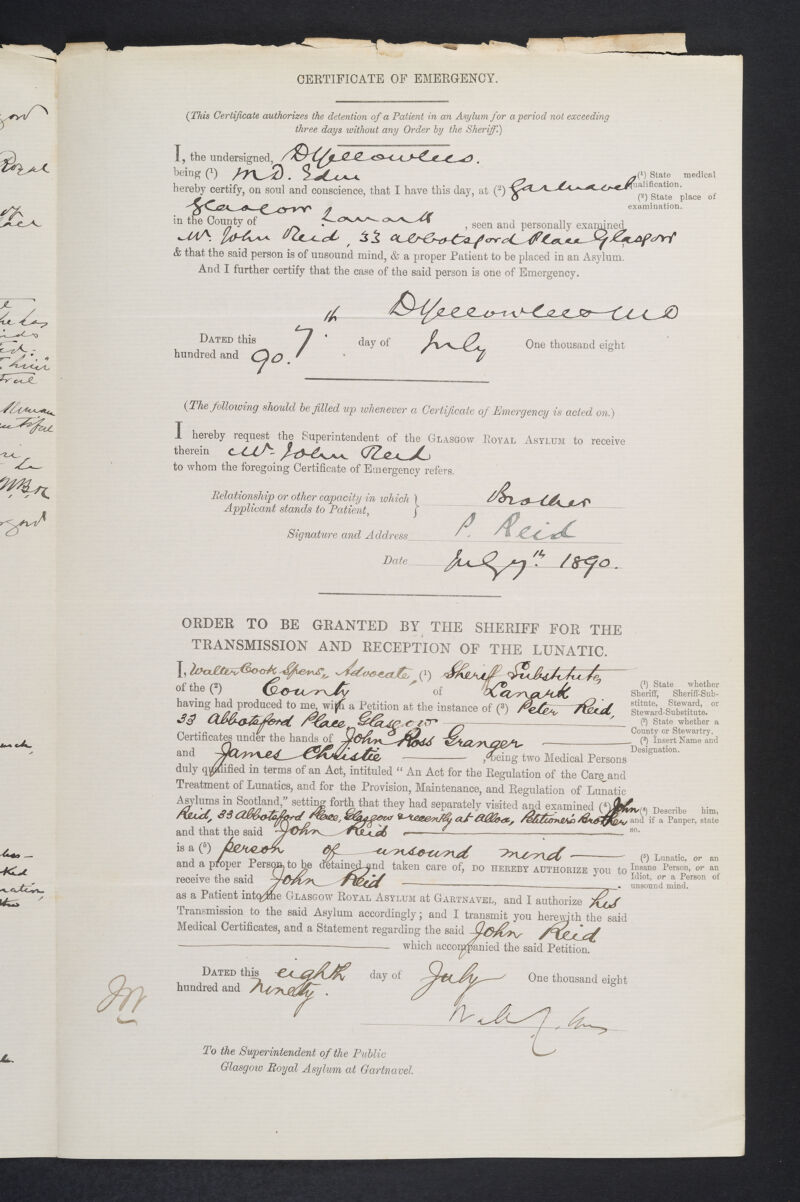 CERTIFICATE OF EMERGENCY.
(This Certificate authorizes the detention of a Patient in an Asylum for a period not exceeding
three days without any Order by the Sheriff.)
I, the undersigned, D Yellowlees.
being (1) M.D. Edin
hereby certify, on soul and conscience, that I have this day, at (2) Gartnavel
Glasgow
in the County of Lanark, seen and personally examined
Mr. John Reid, 33 Abbotsford Place Glasgow
& that the said person is of unsound mind, & a proper Patient to be placed in an Asylum.
And I further certify that the case of the said person is one of Emergency.
(1) State medical
qualification.
(2) State place of
examination.
D Yellowlees MD
DATED this 7th day of July One thousand eight
hundred and 90.
(The following should be filled up whenever a Certificate of Emergency is acted on.)
I hereby request the Superintendent of the GLASGOW ROYAL ASYLUM to receive
therein Mr. John Reid
to whom the foregoing Certificate of Emergency refers.
Relationship or other capacity in which
Applicant stands to Patient, } Brother
Signature and Address P. Reid
Date July 7th. 1890.
ORDER TO BE GRANTED BY THE SHERIFF FOR THE
TRANSMISSION AND RECEPTION OF THE LUNATIC.
I, Walter Cook Spens, Advocate, (1) Sheriff Substitute
of the (2) County of Lanark
having had produced to me, with a Petition at the instance of (3) Peter Reid,
33 Abbotsford Place, Glasgow
Certificates under the hands of John Ross Granger
and James Christie, being two Medical Persons
duly qualified in terms of an Act, intituled "An Act for the Regulation of the Care and
Treatment of Lunatics, and for the Provision, Maintenance, and Regulation of Lunatic
Asylums in Scotland," setting forth that they had separately visited and examined (4) John
Reid, 33 Abbotsford Place, Glasgow & recently at Alloa, Petitioner's Brother
and that the said John Reid
is a (5) person of unsound mind
and a proper Person to be detained and taken care of, DO HEREBY AUTHORIZE you to
receive the said John Reid
as a Patient into the GLASGOW ROYAL ASYLUM at GARTNAVEL, and I authorize his
Transmission to the said Asylum accordingly; and I transmit you herewith the said
Medical Certificates, and a Statement regarding the said John Reid
which accompanied the said Petition.
(1) State whether
Sheriff, Sheriff-Sub-
stitute, Steward, or
Steward-Substitute.
(2) State whether a
County or Stewartry.
(3) Insert Name and
Designation.
(4) Describe him,
and if a Pauper, state
so.
(5) Lunatic, or an
Insane Person, or an
Idiot, or a Person of
unsound mind.
DATED this eighth day of July One thousand eight
hundred and Ninety.
To the Superintendent of the Public
Glasgow Royal Asylum at Gartnavel.